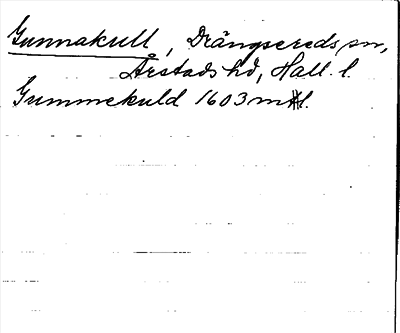 Gunnakull, Drängsereds sn,
Årstads hd, Hall. l.
Gummekuld 1603 mtl.